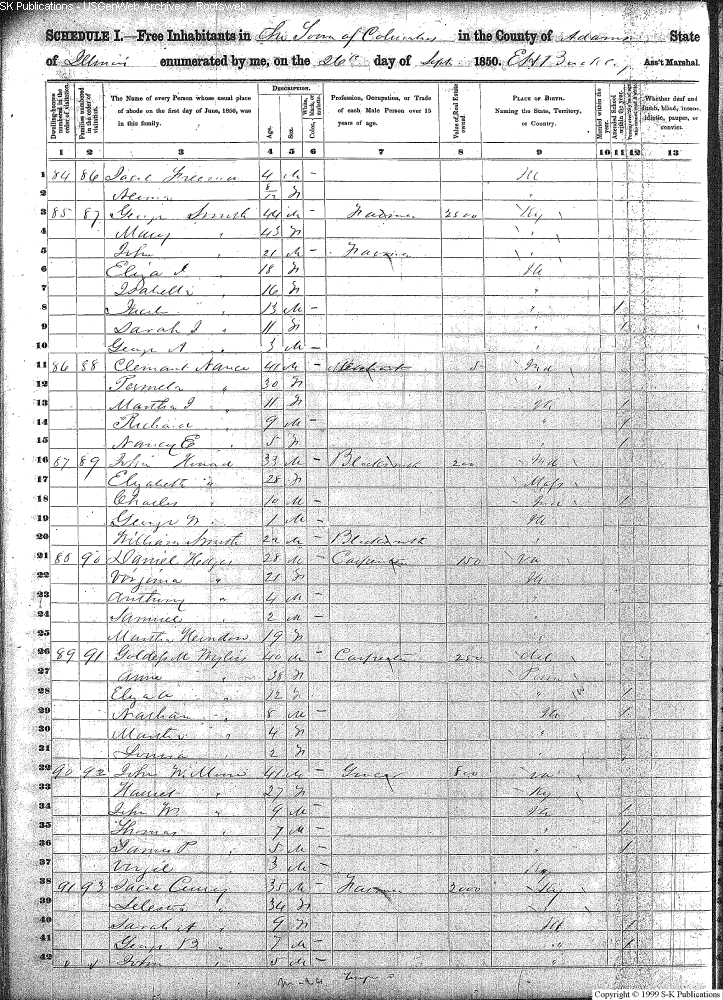 SK Publications - USGenWeb Archives - Rootsweb
SCHEDULE I.—Free Inhabitants in The Town of Columbus in the County of Adams State
of Illinois enumerated by me, on the 26th day of Sept 1850. Ass't Marshal.
Dwelling-houses numbered in the order of visitation.
Families numbered in the order of visitation.
The Name of every Person whose usual place of abode on the first day of June, 1850, was in this family.
DESCRIPTION.
Age.
Sex.
Color, White, black, or mulatto.
Profession, Occupation, or Trade of each Male Person over 15 years of age.
Value of Real Estate owned.
PLACE OF BIRTH. Naming the State, Territory, or Country.
Married within the year.
Attended School within the year.
Whether deaf and dumb, blind, insane, idiotic, pauper, or convict.
1 2 3 4 5 6 7 8 9 10 11 12 13
1 84 86 Freeman 4 M – Ill
2 8/12 F "
3 85 87 George Smith 44 M – Farmer 2500 Ky
4 Mary " 43 F "
5 John " 21 M – Farmer "
6 Eliza J " 18 F Ill
7 Isabella " 16 F "
8 " 13 M – " 1
9 Sarah J " 11 F " 1
10 George A " 3 M – "
11 86 88 Clemant Nance 41 M – Merchant
12 Permela " 30 F "
13 Martha J " 11 F Ill 1
14 Richard " 9 M – " 1
15 Nancy E " 5 F " 1
16 87 89 John Howard 33 M – Blacksmith 200 Ind
17 Elizabeth " 28 F Mass
18 Charles " 10 M – Ind 1
19 George W. " 1 M – Ill
20 William Smith 22 M – Blacksmith "
21 88 90 Daniel Hedges 28 M – Carpenter 150 Va
22 Virginia " 21 F Ill
23 Anthony " 4 M – "
24 Samuel " 2 M – "
25 Martha Herndon 19 F "
26 89 91 40 M – Carpenter 250
27 Anne " 38 F Penn
28 Eliza A " 12 F " 1
29 Nathan " 8 M – Ill 1
30 Martha " 4 F "
31 Louisa " 2 F "
32 90 92 John W. Moore 41 M – Grocer 800 Va
33 Harriet " 27 F Ky
34 John M " 9 M – Ill 1
35 Thomas " 7 M – " 1
36 James P " 5 M – " 1
37 Virgil " 3 M –
38 91 93 35 M – Farmer 2000 Ky
39 34 F "
40 Sarah A " 9 F Ill 1
41 George B " 7 M – " 1
42 " " John " 5 M –
Copyright © 1999 S-K Publications